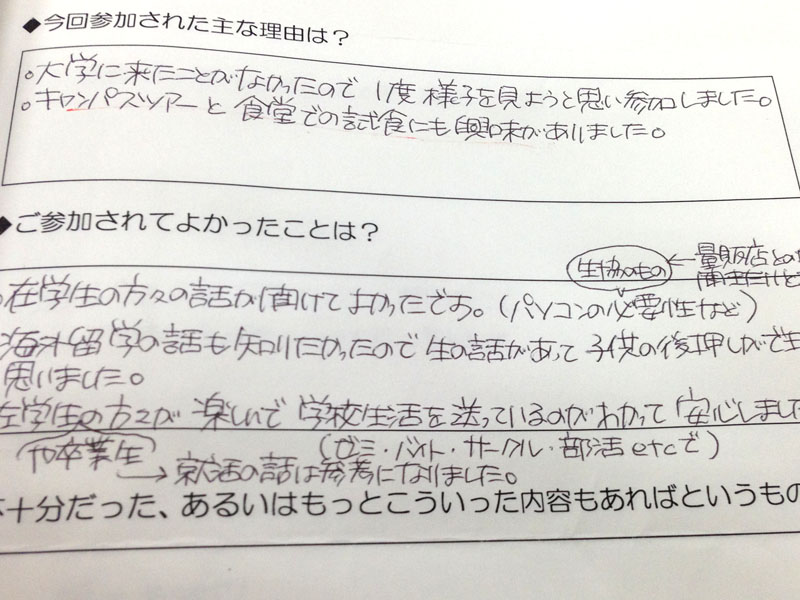 ◆今回参加された主な理由は？
○大学に来たことがなかったので 1度様子を見ようと思い参加しました。
○キャンパスツアーと食堂での試食にも興味がありました。
◆ご参加されてよかったことは？
生協のもの ← 量販店との
在学生の方々の話が聞けてよかったです。(パソコンの必要性など)
海外留学の話も知りたかったので生の話があって子供の後押しができ
思いました。
在学生の方々が楽しいで学校生活を送っているのがわかって安心しました
や卒業生
(ゼミ・バイト・サークル・部活etcで)
→就活の話は参考になりました。
不十分だった、あるいはもっとこういった内容もあればというもの